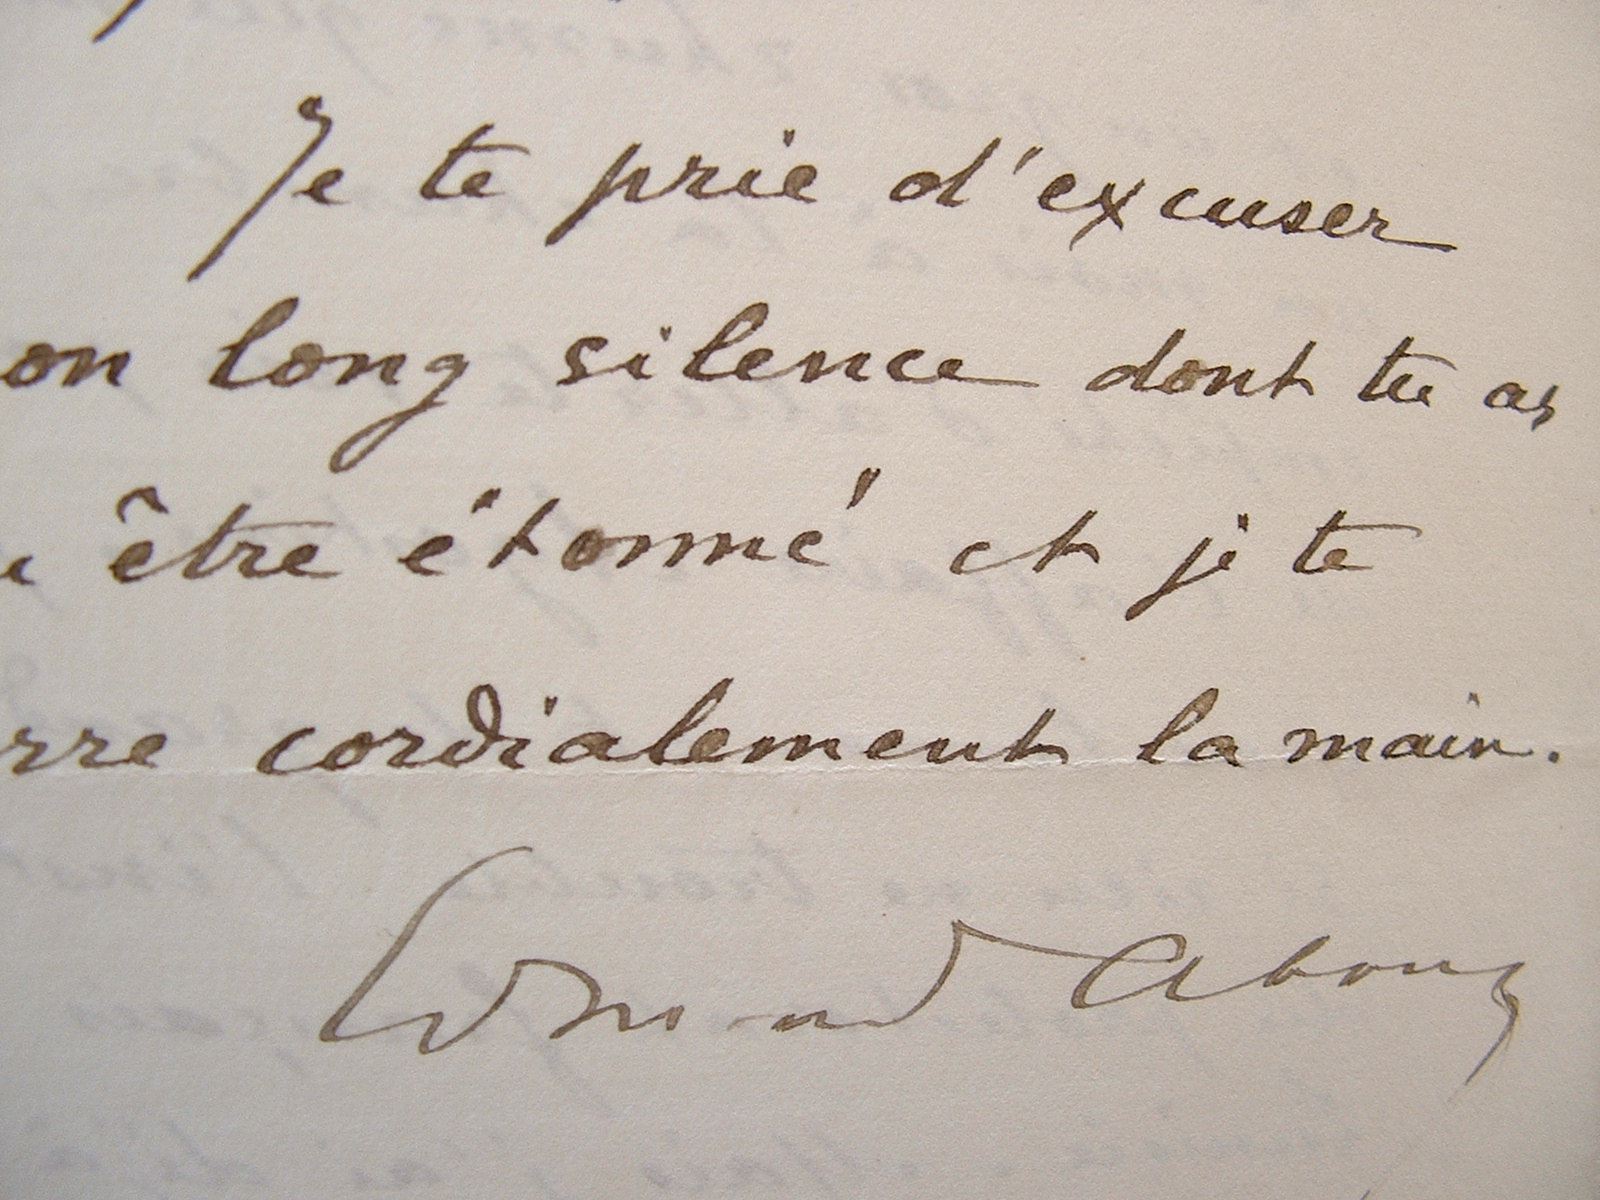 Je te prie d'excuser
on long silence dont tu as
être étonné et je te
rre cordialement la main.
Edmond About